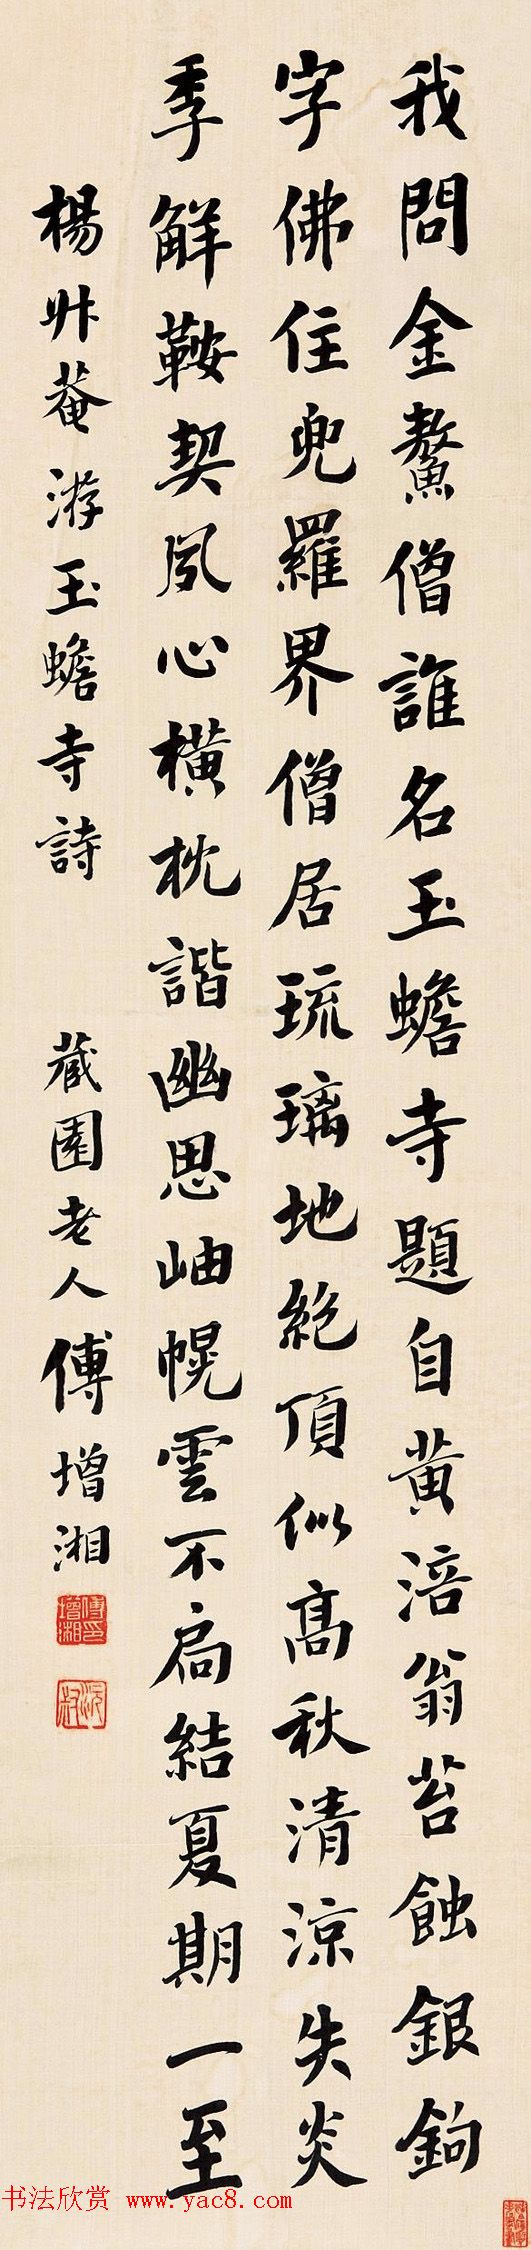 我問金鰲僧誰名玉蟾寺題自黃涪翁苔蝕銀鉤
字佛住兜羅界僧居琉璃地絕頂似高秋清涼失炎
季解鞍契夙心橫枕諧幽思岫幌雲不扃結夏期一至
楊升菴游玉蟾寺詩 藏園老人傅增湘
傅增湘印
沅叔
书法欣赏 www.yac8.com